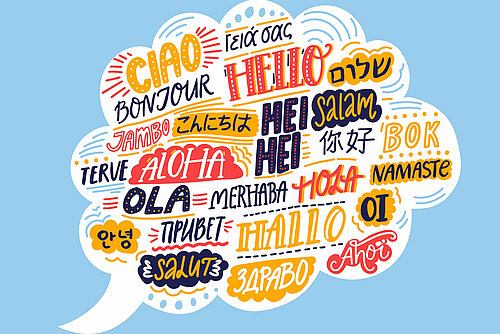 CIAO
Γειά σας
HELLO
שלום
BONJOUR
JAMBO
こんにちは
HEI
HEI
Salam
你好
BOK
TERVE
ALOHA
NAMASTE
OLA
MERHABA
HOLA
OI
안녕
ПРИВЕТ
HALLO
Ahoi
SALUT
ЗДРАВО